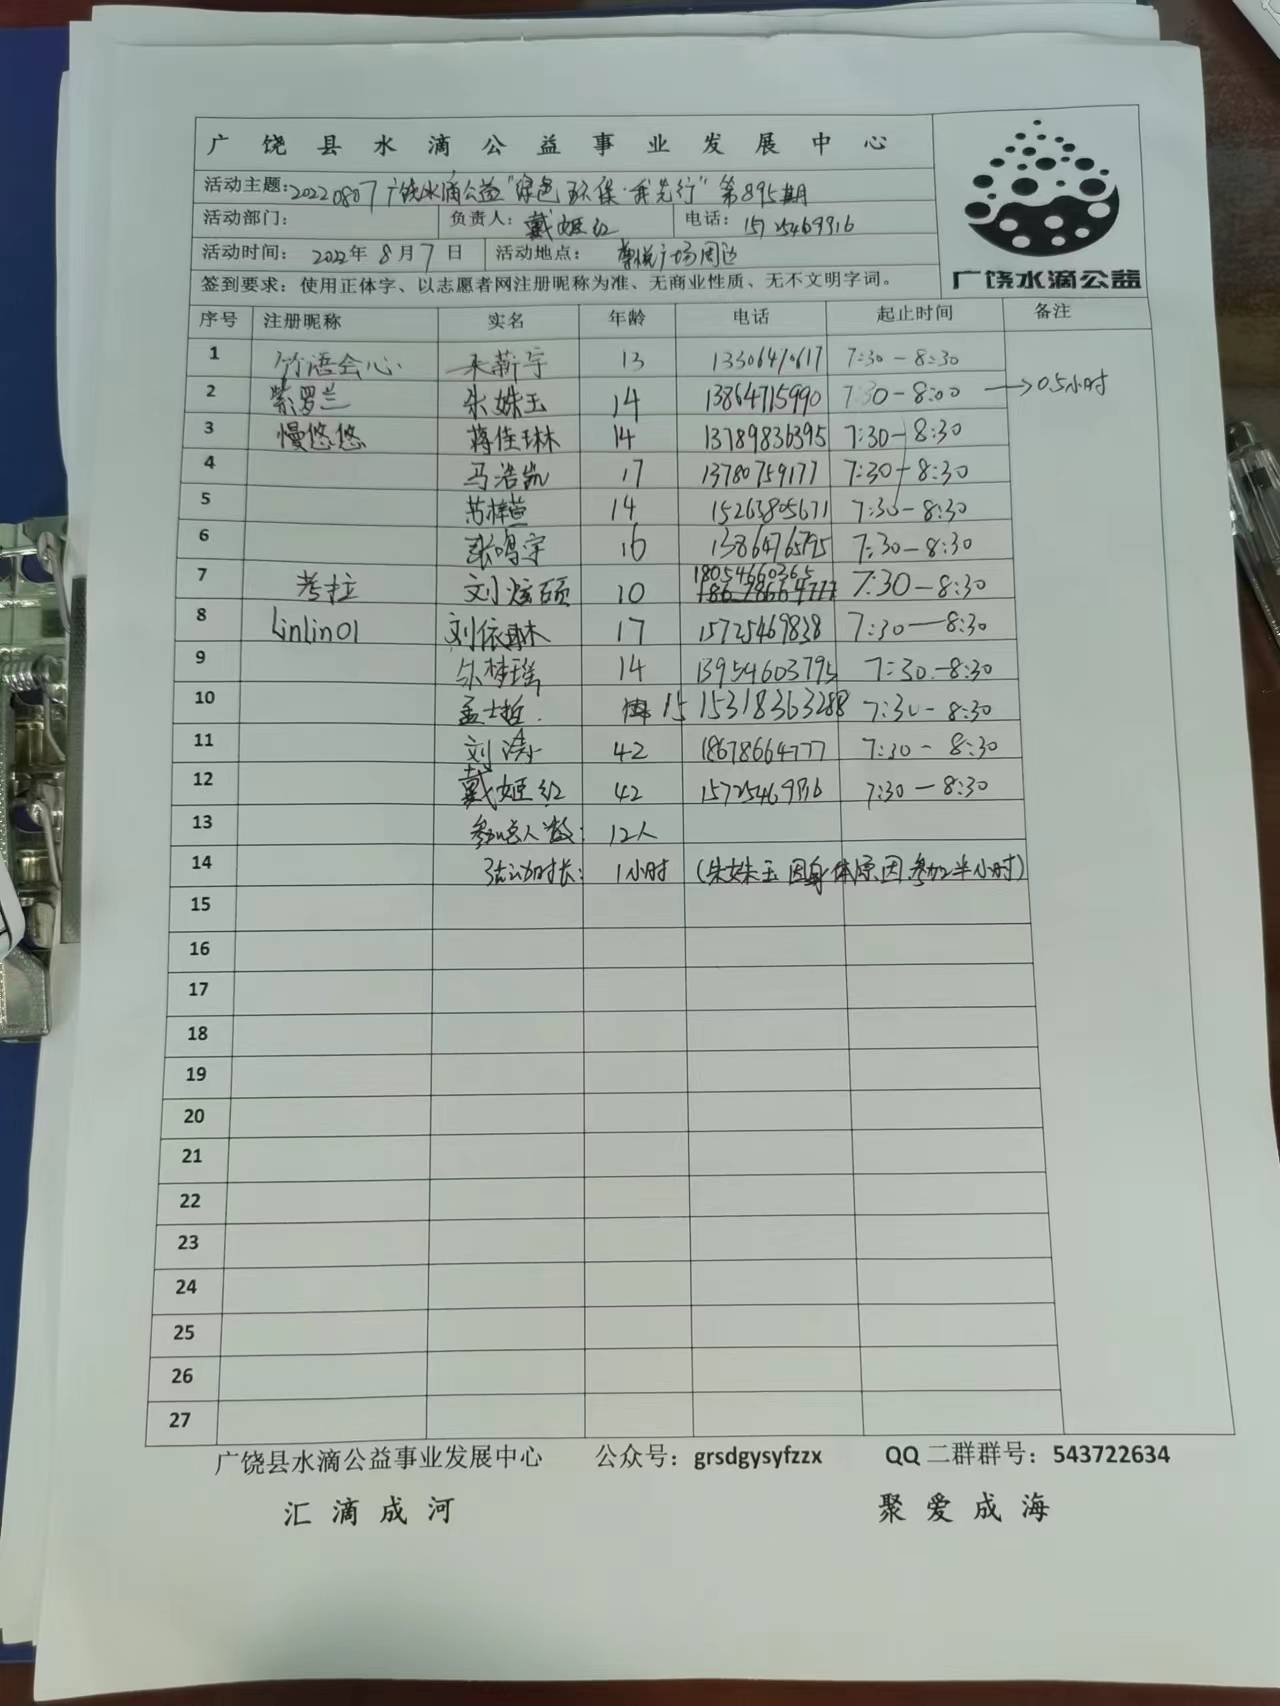 广饶县水滴公益事业发展中心
活动主题:20220807广饶水滴公益"绿色环保·我先行"第895期
活动部门: 负责人: 戴姬红 电话: 15725469916
活动时间: 2022年8月7日 活动地点: 广场周边
签到要求: 使用正体字、以志愿者网注册昵称为准、无商业性质、无不文明字词。
广饶水滴公益
序号 注册昵称 实名 年龄 电话 起止时间 备注
1 竹语会心 13 13306470617 7:30-8:30
2 紫罗兰 朱姝玉 14 13864715990 7:30-8:00 →0.5小时
3 慢悠悠 蒋佳琳 14 13789836395 7:30-8:30
4 马浩凯 17 13780759177 7:30-8:30
5 14 15263805671 7:30-8:30
6 张鸣宇 16 13864765795 7:30-8:30
7 考拉 刘炫硕 10 18054660365 18678664777 7:30-8:30
8 Linlin01 刘依琳 17 15725469838 7:30-8:30
9 梦瑶 14 13954603795 7:30-8:30
10 孟士哲 15 15318363288 7:30-8:30
11 刘涛 42 18678664777 7:30-8:30
12 戴姬红 42 15725469916 7:30-8:30
13 参加总人数: 12人
14 活动时长: 1小时 (朱姝玉因身体原因参加半小时)
15
16
17
18
19
20
21
22
23
24
25
26
27
广饶县水滴公益事业发展中心 公众号: grsdgysyfzzx QQ二群群号: 543722634
汇滴成河 聚爱成海